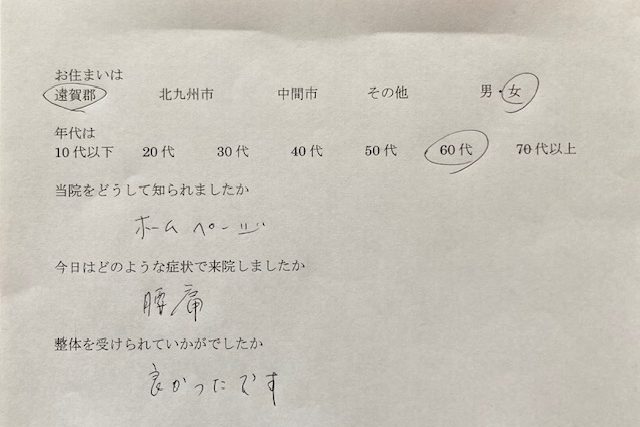 お住まいは
遠賀郡 北九州市 中間市 その他 男・女
年代は
10代以下 20代 30代 40代 50代 60代 70代以上
当院をどうして知られましたか
ホームページ
今日はどのような症状で来院しましたか
腰痛
整体を受けられていかがでしたか
良かったです